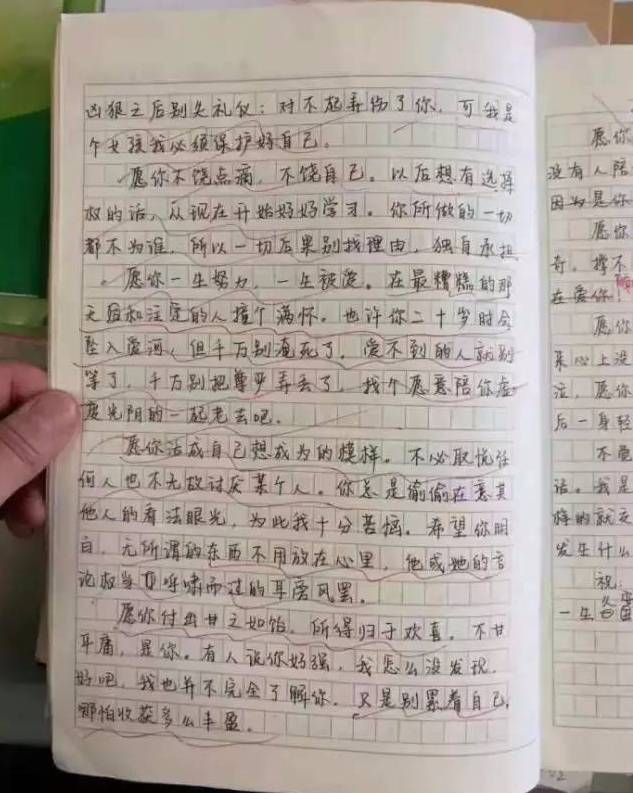 凶狠之后别失礼仪：对不起弄伤了你，可我是
个女孩我必须保护好自己。
愿你不饶点痛，不饶自己。以后想有选择
权的话，从现在开始好好学习。你所做的一切
都不为谁，所以一切后果别找理由，独自承担
愿你一生努力，一生被爱。在最糟糕的那
天后和注定的人撞个满怀。也许你二十岁时会
坠入爱河，但千万别淹死了，爱不到的人就别
等了，千万别把尊严弄丢了，找个愿意陪你虚
度光阴的一起老去吧。
愿你活成自己想成为的模样。不必取悦任
何人也不无故讨厌某个人。你总是偷偷在意其
他人的看法眼光，为此我十分苦恼。希望你明
白，无所谓的东西不用放在心里，他或她的言
论权当顶呼啸而过的耳旁风罢。
愿你付出甘之如饴，所得归于欢喜。不甘
平庸，是你。有人说你好强，我怎么没发现，
好吧，我也并不完全了解你。只是别累着自己，
哪怕收获多么丰盈。
愿你
没有人陪
因为是你
愿你
奇，撑不
在爱你
愿你
某心上没
泣，愿你
后一身轻
不
话。我是
择的就
发生什么
祝：
一生